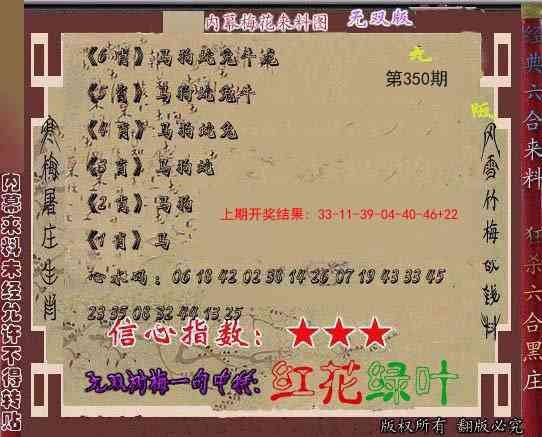 内幕梅花来料图 无双版
《6 肖》马狗蛇兔牛龙
第350期
《5 肖》马狗蛇兔牛
《4 肖》马狗蛇兔
《3 肖》马狗蛇
《2 肖》马狗
上期开奖结果：33-11-39-04-40-46+22
《1 肖》马
心水码：06 18 42 02 38 14 26 07 19 43 33 45
23 35 08 32 44 13 25
信心指数：★★★
红花绿叶
版权所有 翻版必究
内幕来料未经允许不得转贴
寒梅屠庄生肖
经典六合来料 狂杀六合黑庄